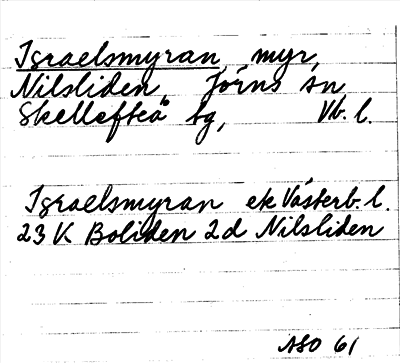 Israelsmyran, myr,
Nilsliden, Jörns sn,
Skellefteå tg, Vb. l.
Israelsmyran ek Västerb. l.
23 K Boliden 2d Nilsliden
ASO 61